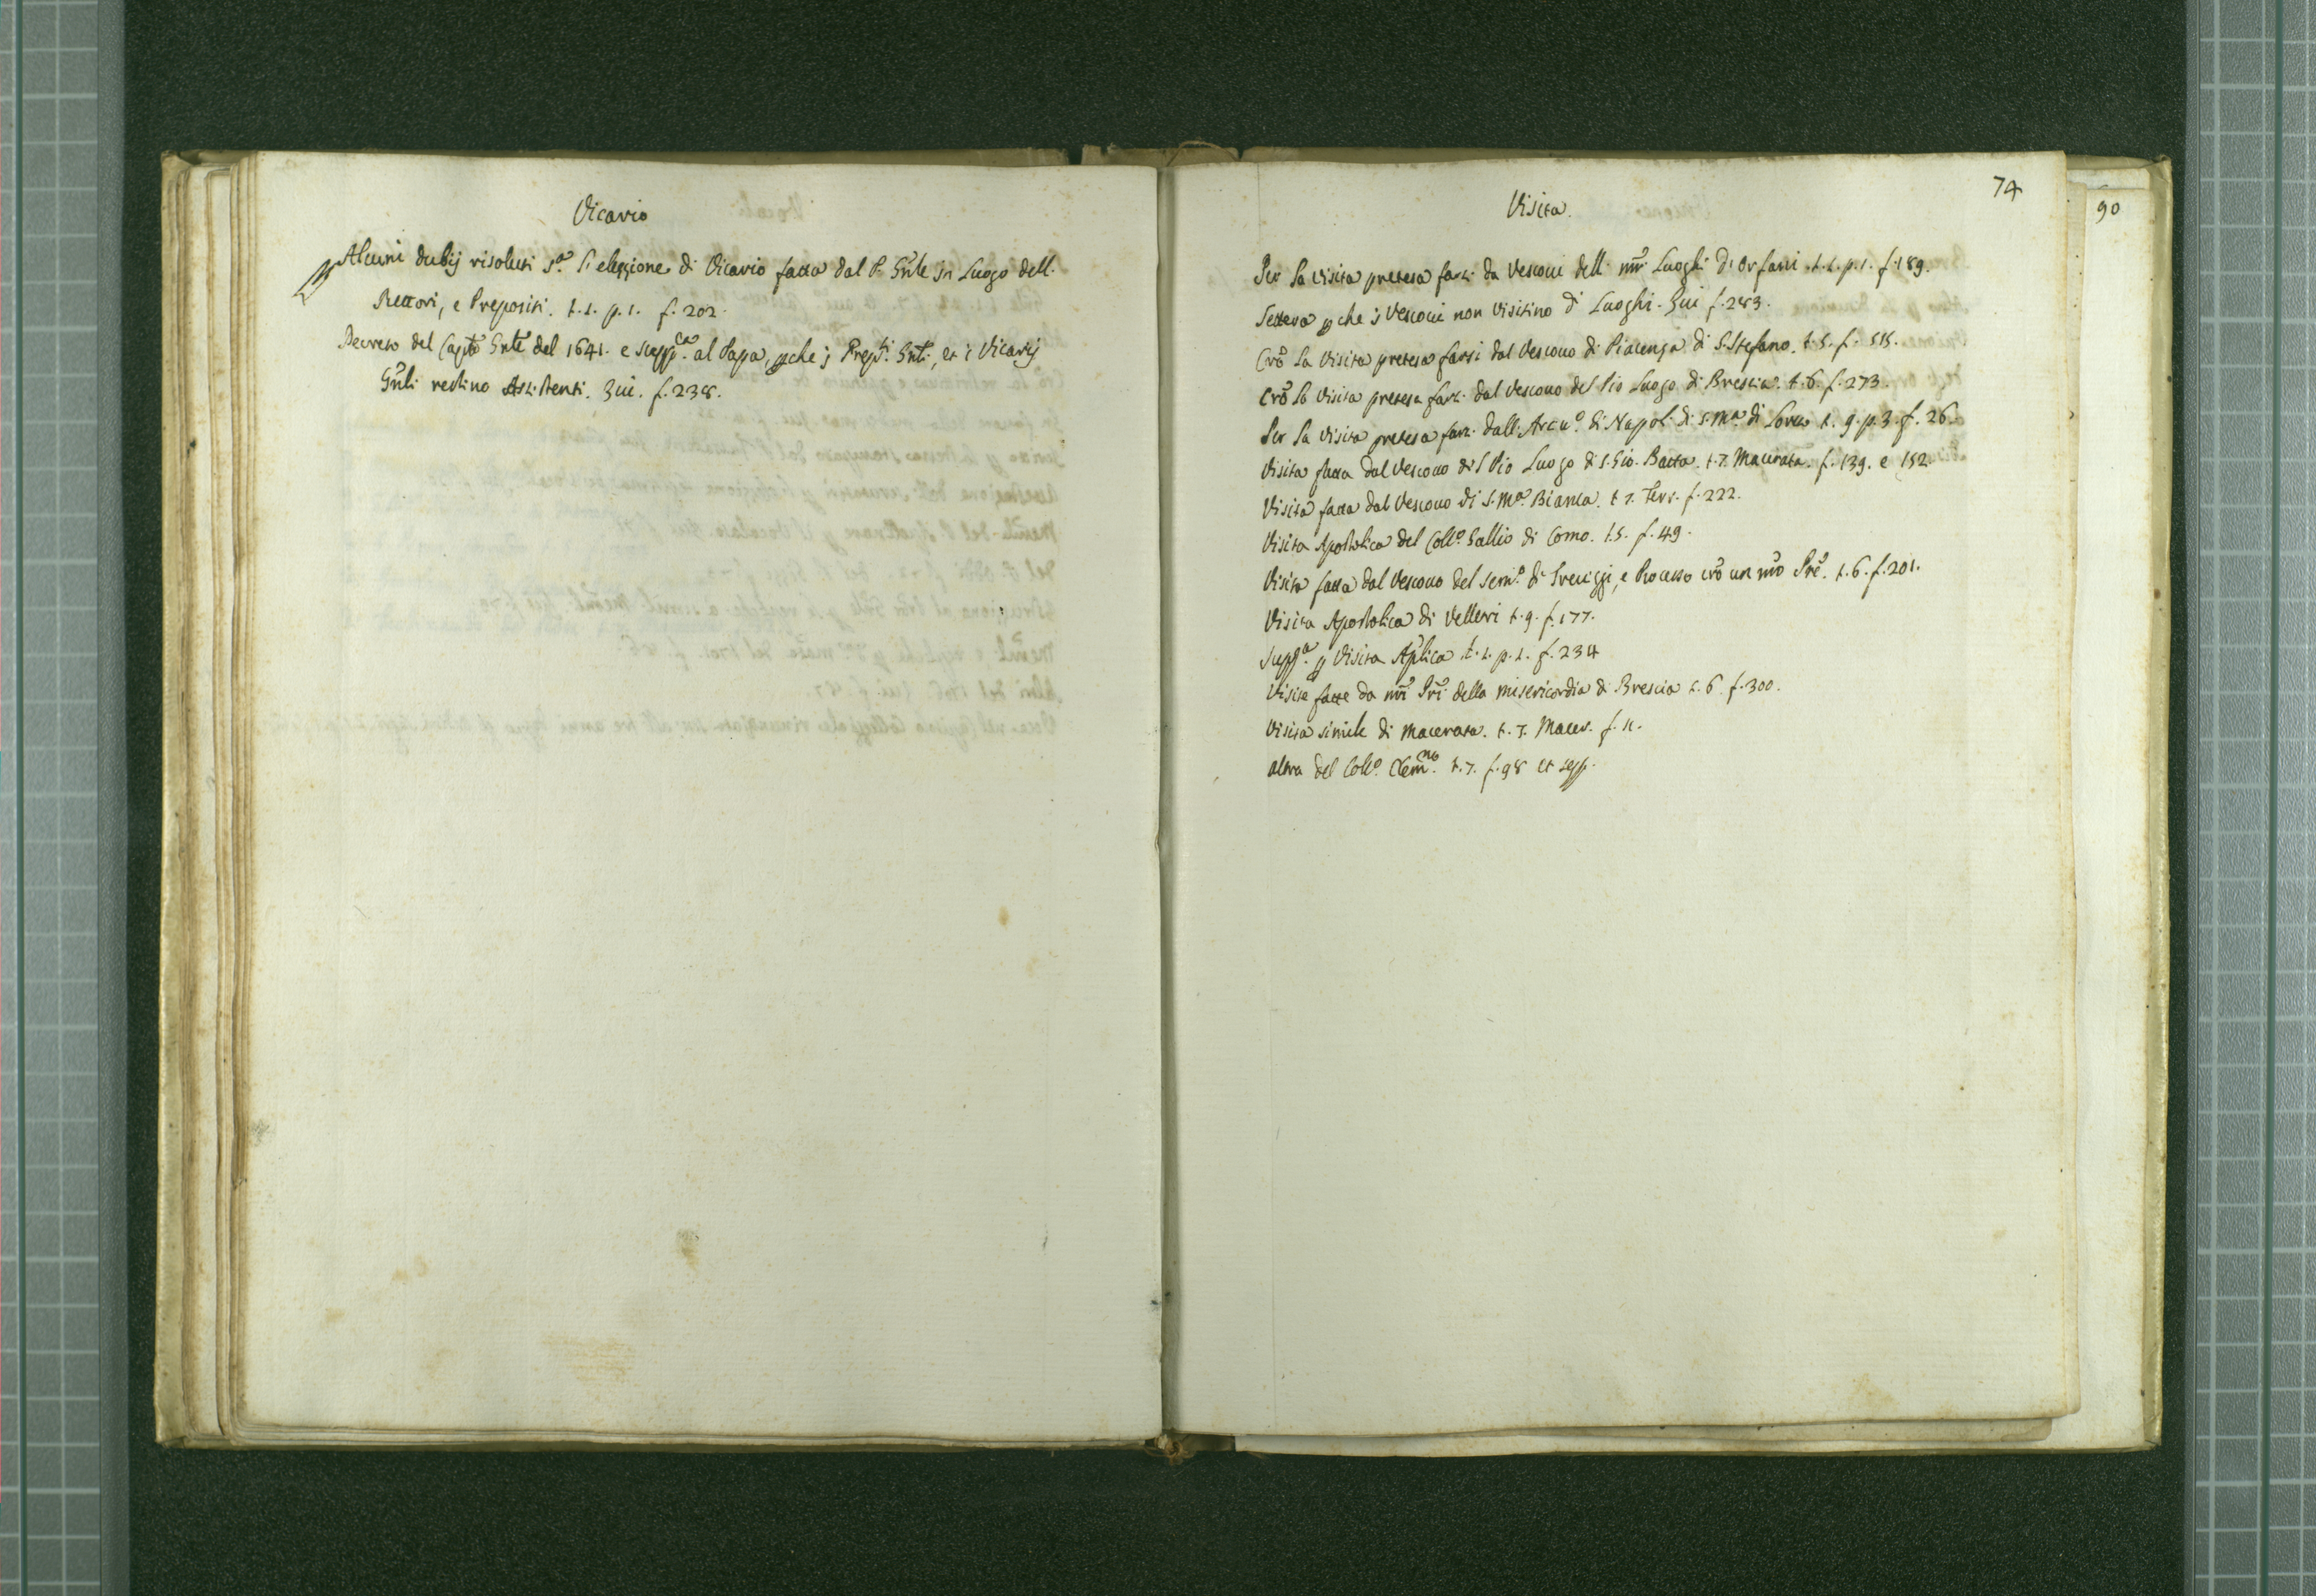 Vicario
Alcuni dubij risoluti s.ª l'elezzione di Vicario fatta dal P. Gñle in Luogo dell.
Rettori, e Prepositi. t.1. p.1. f. 202.
Decreto del Capto Gñle del 1641. e supp.ca al Papa, pche i Prepti Gñli, et i Vicarij
Gñli restino Assistenti. Qui. f. 238.
74
90
Visita.
Per la visita pretesa farsi da Vescoui dell. nrĩ Luoghi d'Orfani. t.1. p.1. f. 189.
Lettera pche i Vescoui non visitino di Luoghi. Qui f. 283.
Crõ la Visita pretesa farsi dal Vescouo di Piacenza di S. Stefano. t.5. f. 515.
Crõ la visita pretesa farsi dal Vescouo del Pio Luogo di Brescia. t.6. f. 273.
Per la visita pretesa farsi dall'Arciu.º di Napoli di S. M.ª di Loreto t. 9. p. 3. f. 26.
Visita fatta dal Vescouo del Pio Luogo di S. Gio. Batta. t.7. Macerata. f. 139. e 152.
Visita fatta dal Vescouo di S. M.ª Bianca. t.7. Ferr. f. 222.
Visita Apostolica del Coll.º Gallio di Como. t.5. f. 49.
Visita fatta dal Vescouo del Sem.º di , e Processo crõ un nrõ Prẽ. t.6. f. 201.
Visita Apostolica di Velletri t. 9. f. 177.
Supp.ª p Visita Aplica t.1. p.1. f. 234
Visite fatte da nrĩ Prĩ della misericordia di Brescia t.6. f. 300.
Visita simile di Macerata. t.7. Macer. f. 11.
altra del Coll.º Clem.no t.7. f. 98 et seqq.